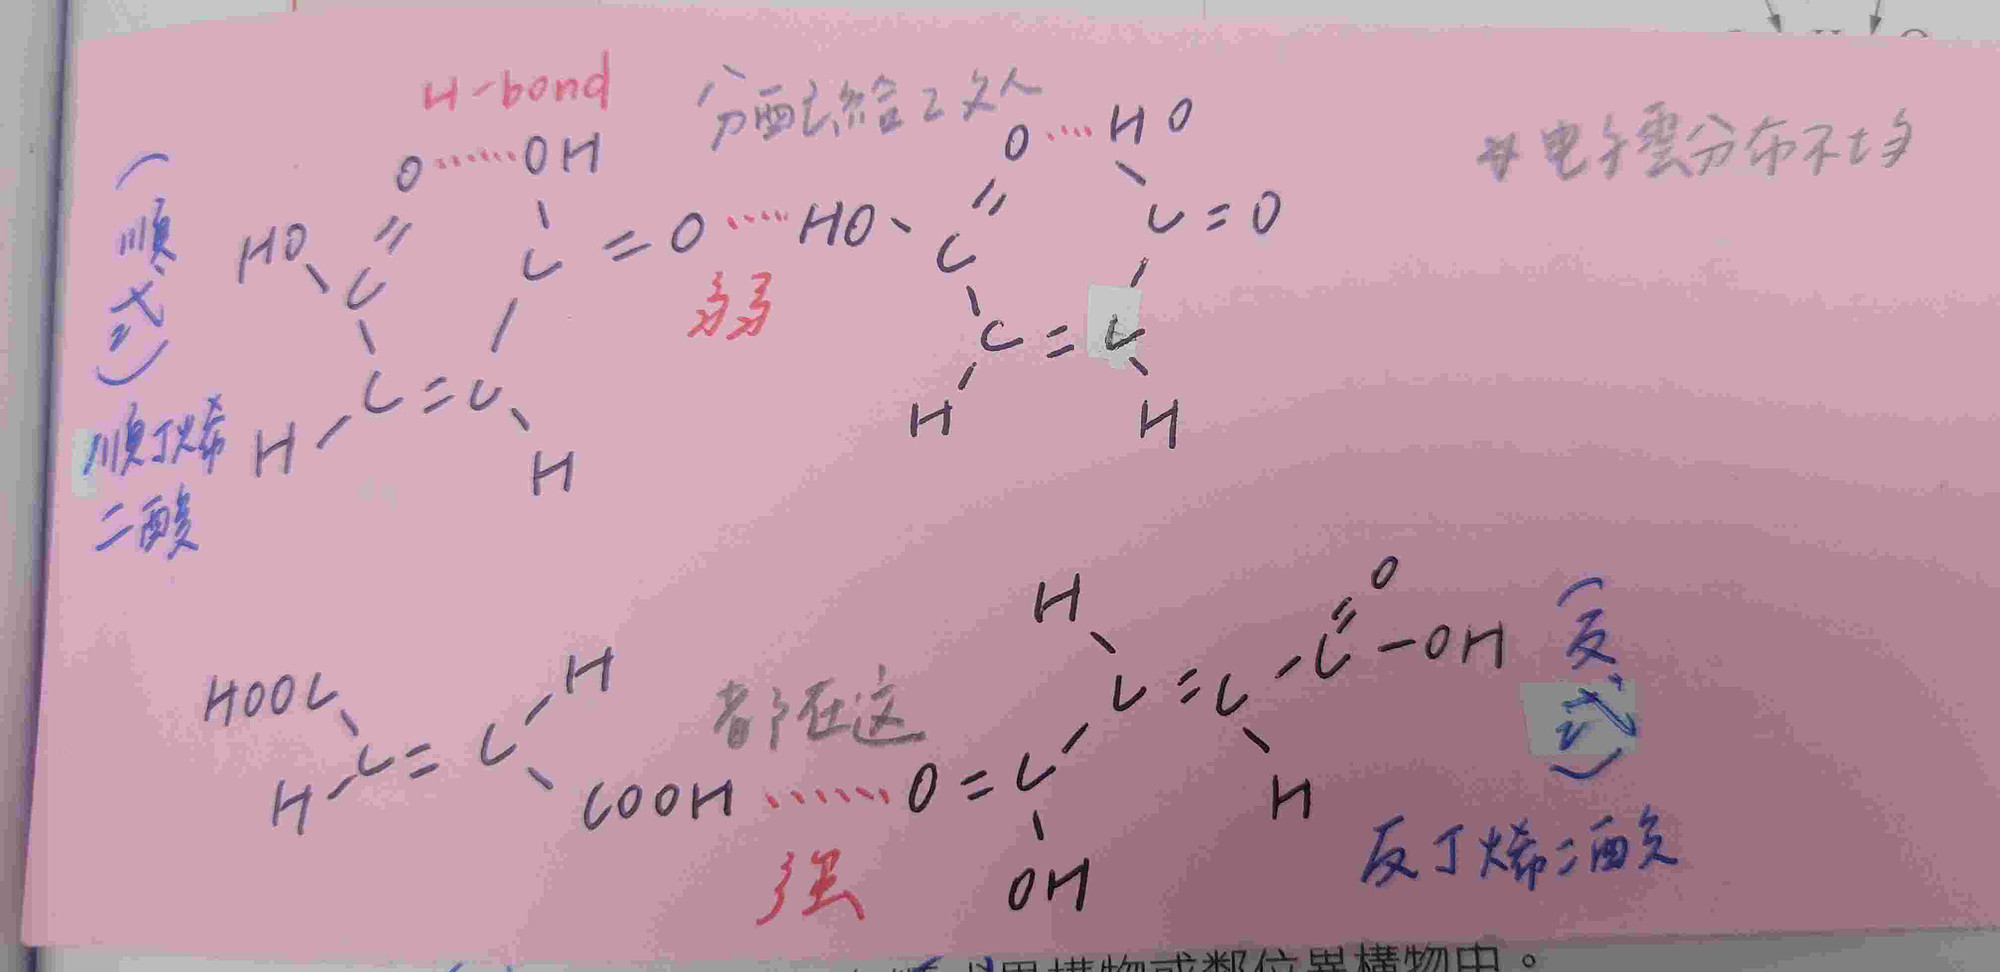 H-bond
分配去給2文人
*电子雲分布不均
(順式)
順丁烯
二酸
O······OH
O····HO
HO
C
C=O····HO
C
C=O
弱
C=C
C=C
H
H
H
H
HOOC
H
H
C
O
C-OH
(反式)
都在这
C=C
C=C
H
COOH······O=C
H
OH
强
反丁烯二酸
異構物或鄰位異構物中。